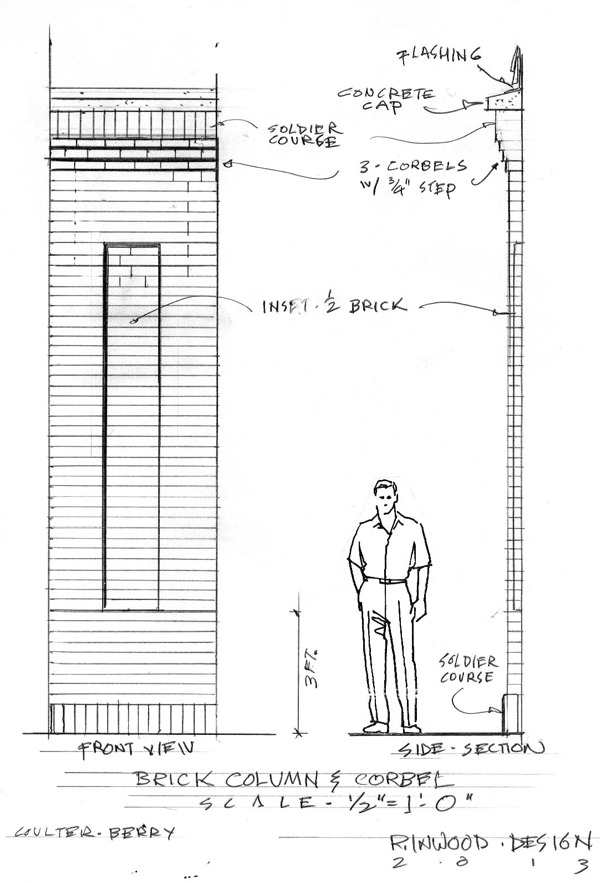 FLASHING
CONCRETE
CAP
SOLDIER
COURSE
3 - CORBELS
W/ 3/4" STEP
INSET - 1/2 BRICK
3 FT.
SOLDIER
COURSE
FRONT VIEW
SIDE - SECTION
BRICK COLUMN & CORBEL
SCALE - 1/2" = 1'- 0"
COULTER - BERRY
RINWOOD - DESIGN
2 0 1 3